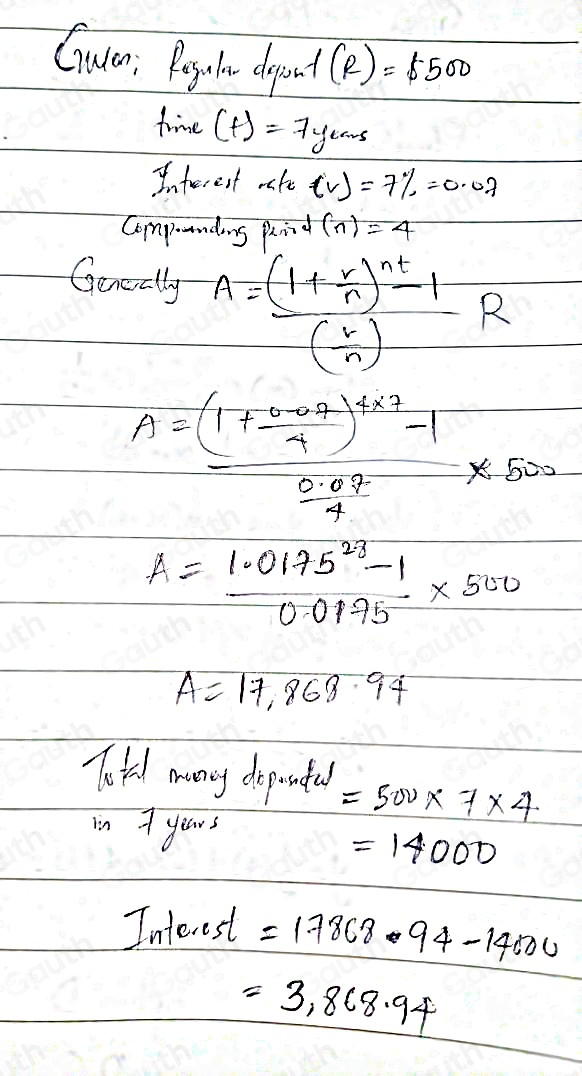 Given; Regular deposit (R) = $500
time (t) = 7 years
Interest rate (r) = 7% = 0.07
Compounding period (n) = 4
Generally A = ((1 + r/n)^nt - 1)/(r/n) R
A = ((1 + 0.07/4)^4×7 - 1)/(0.07/4) × 500
A = (1.0175^28 - 1)/0.0175 × 500
A = 17,868.94
Total money deposited
in 7 years
= 500 × 7 × 4
= 14000
Interest = 17868.94 - 14000
= 3,868.94